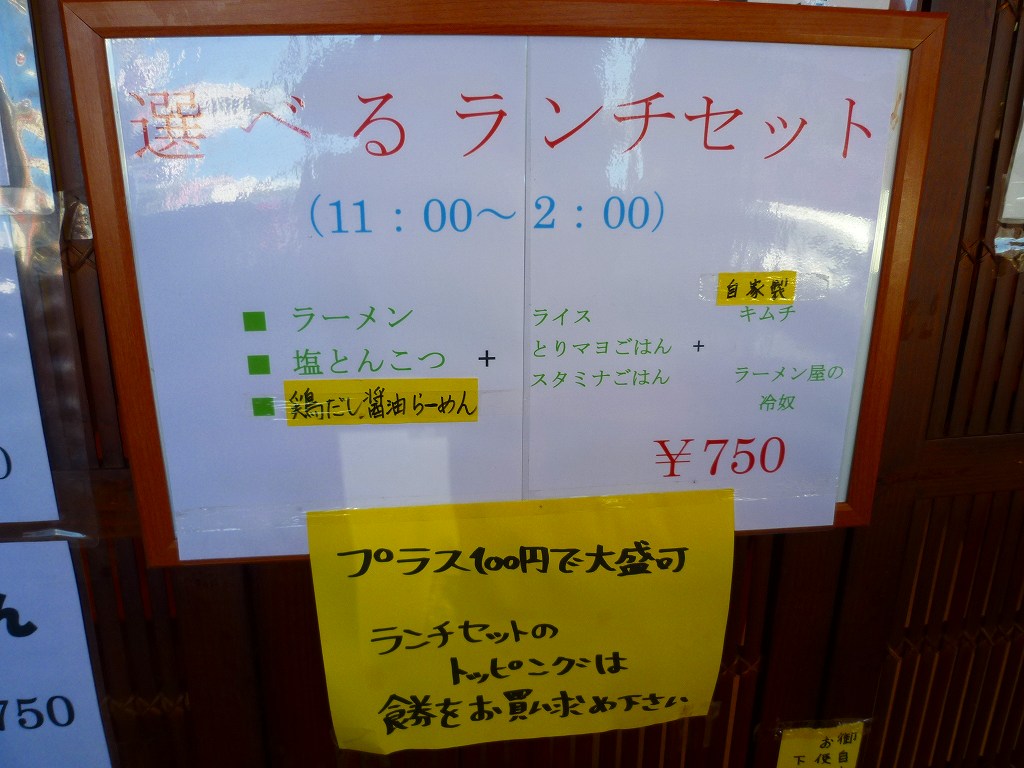 選べるランチセット
(11：00～2：00)
■ ラーメン
■ 塩とんこつ
■ 鶏だし醤油らーめん
+
ライス
とりマヨごはん
スタミナごはん
+
自家製
キムチ
ラーメン屋の
冷奴
￥750
プラス100円で大盛可
ランチセットの
トッピングは
食券をお買い求め下さい
ん
750